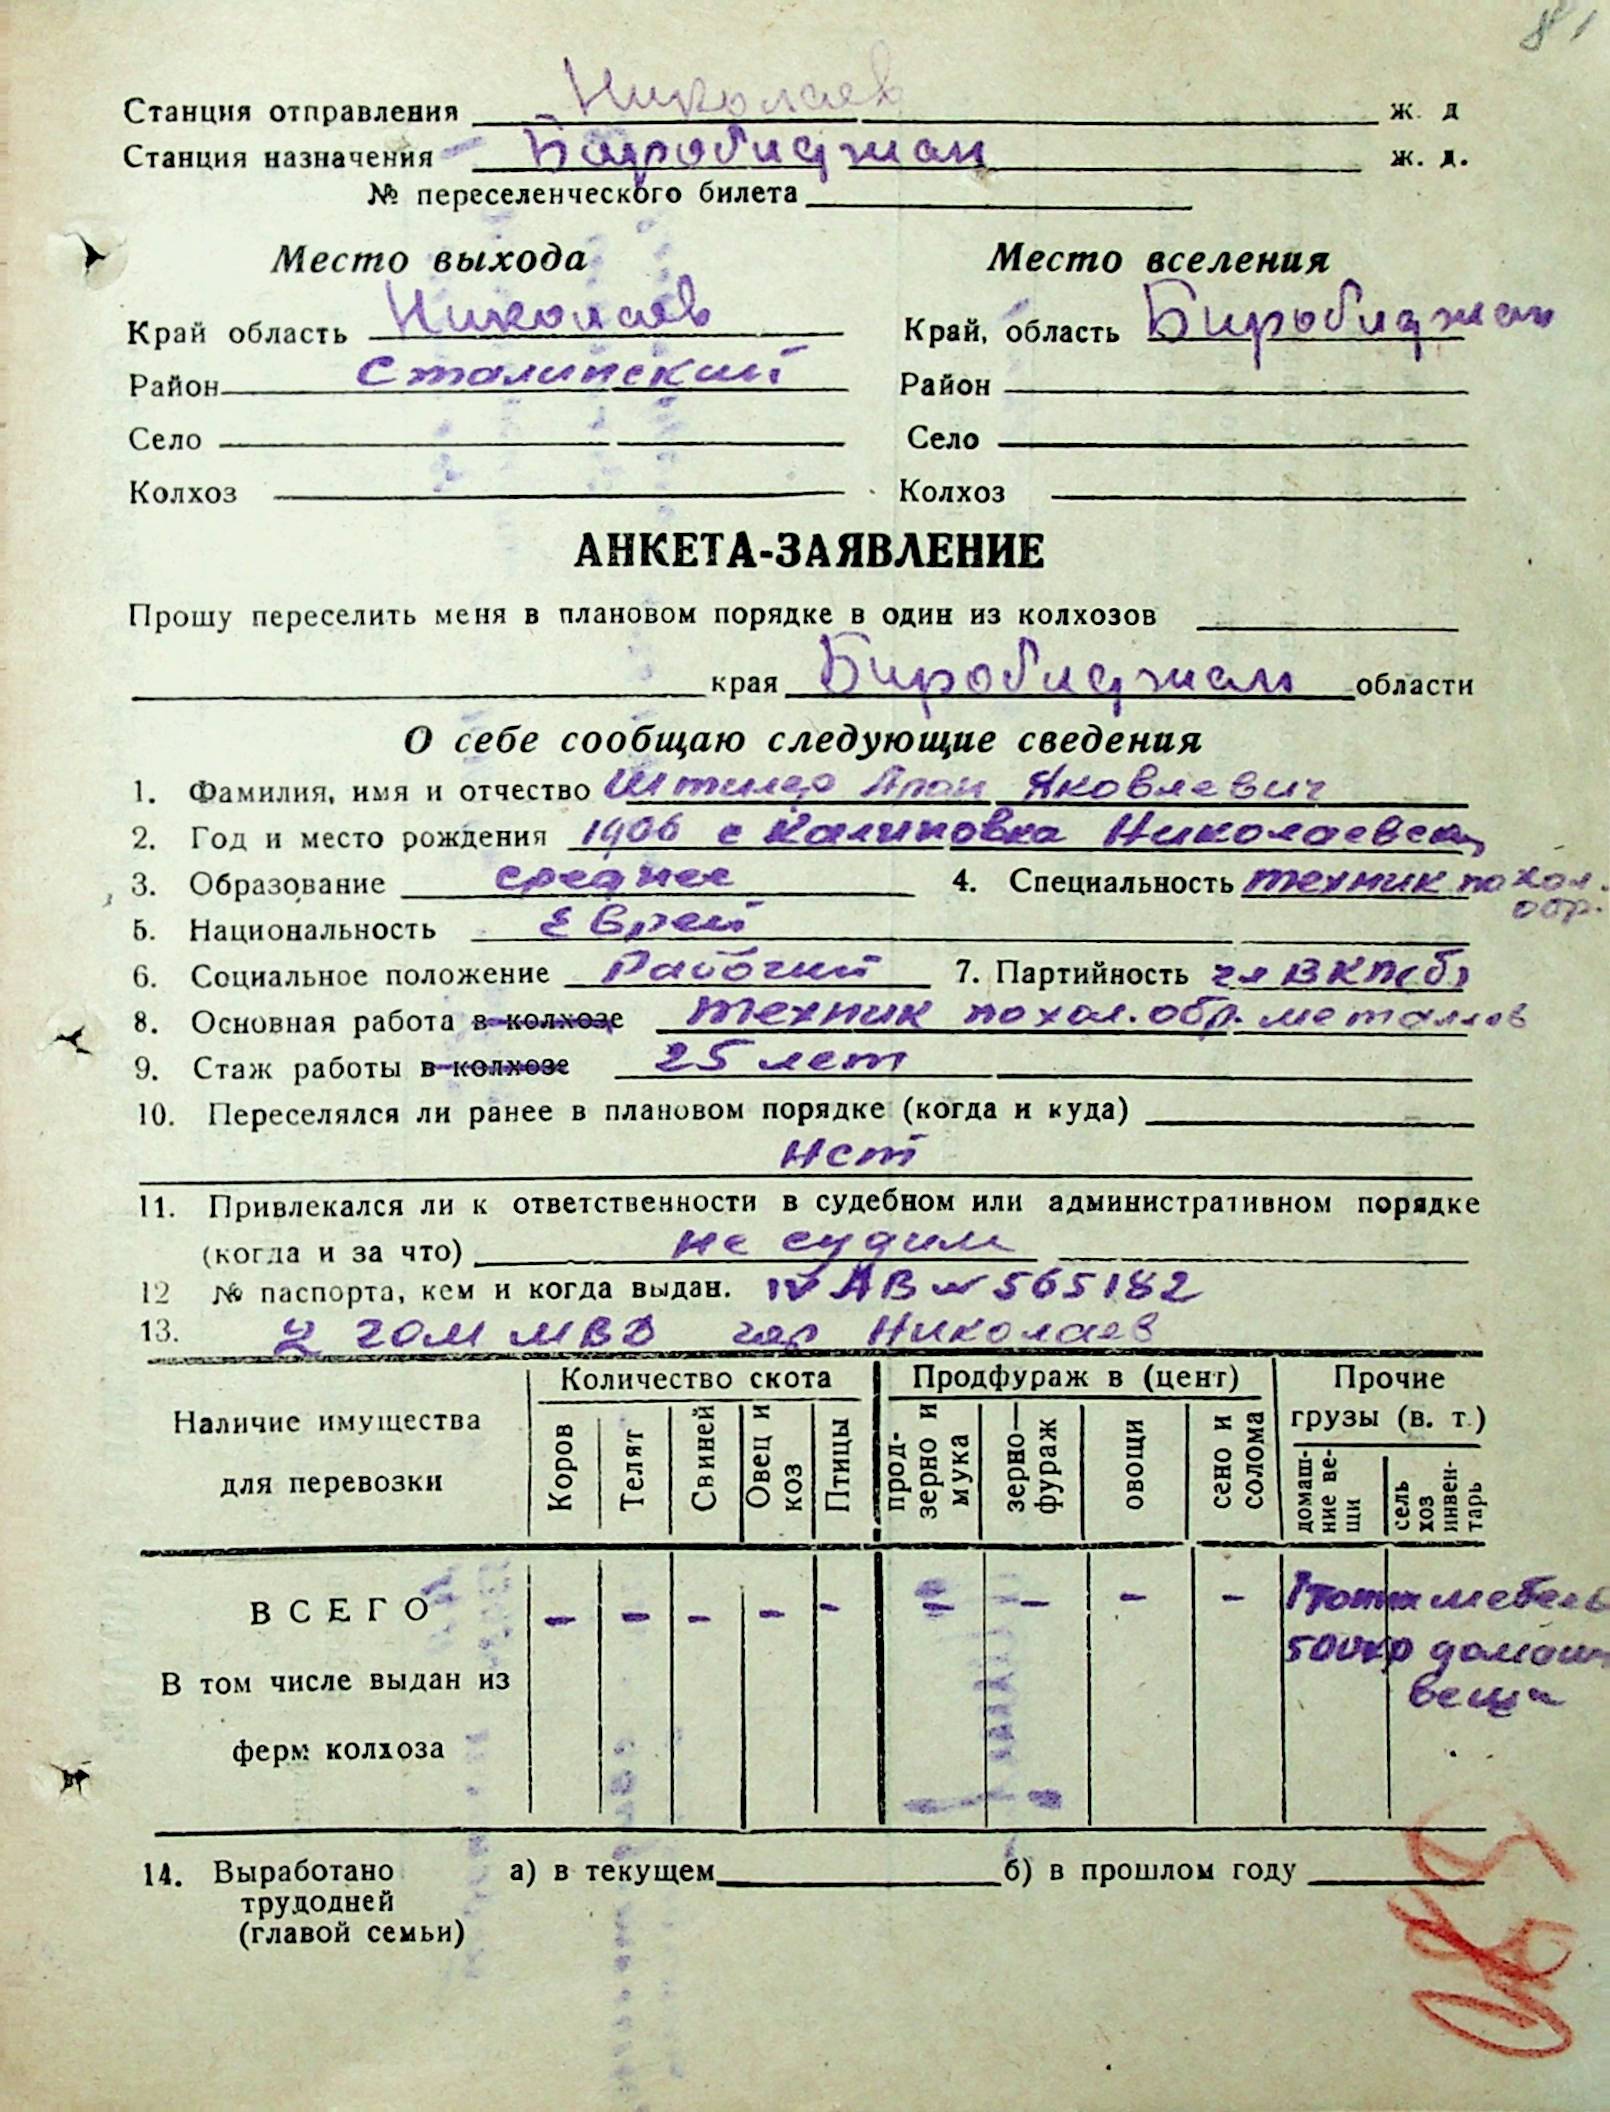 81
Станция отправления Николаев ж. д
Станция назначения Биробиджан ж. д.
№ переселенческого билета
Место выхода Место вселения
Край область Николаев Край, область Биробиджан
Район Сталинский Район
Село Село
Колхоз Колхоз
АНКЕТА-ЗАЯВЛЕНИЕ
Прошу переселить меня в плановом порядке в один из колхозов
края Биробиджан области
О себе сообщаю следующие сведения
1. Фамилия, имя и отчество Штилер Арон Яковлевич
2. Год и место рождения 1906 с Калиновка Николаевск
3. Образование среднее 4. Специальность техник по хол. обр.
5. Национальность Еврей
6. Социальное положение Рабочий 7. Партийность чл ВКП(б)
8. Основная работа в колхозе техник по хол. обр. металлов
9. Стаж работы в колхозе 25 лет
10. Переселялся ли ранее в плановом порядке (когда и куда)
Нет
11. Привлекался ли к ответственности в судебном или административном порядке
(когда и за что) не судим
12 № паспорта, кем и когда выдан. IV АВ № 565182
13. 2 ГОМ МВД гор Николаев
Наличие имущества для перевозки
Количество скота Продфураж в (цент) Прочие грузы (в. т.)
Коров Телят Свиней Овец и коз Птицы прод-зерно и мука зерно—фураж овощи сено и солома домаш-ние ве-щи сель хоз инвен-тарь
ВСЕГО - - - - - - - - - 1 тонн мебель
500 кр домашн
вещи
В том числе выдан из
ферм колхоза
14. Выработано а) в текущем б) в прошлом году
трудодней
(главой семьи)